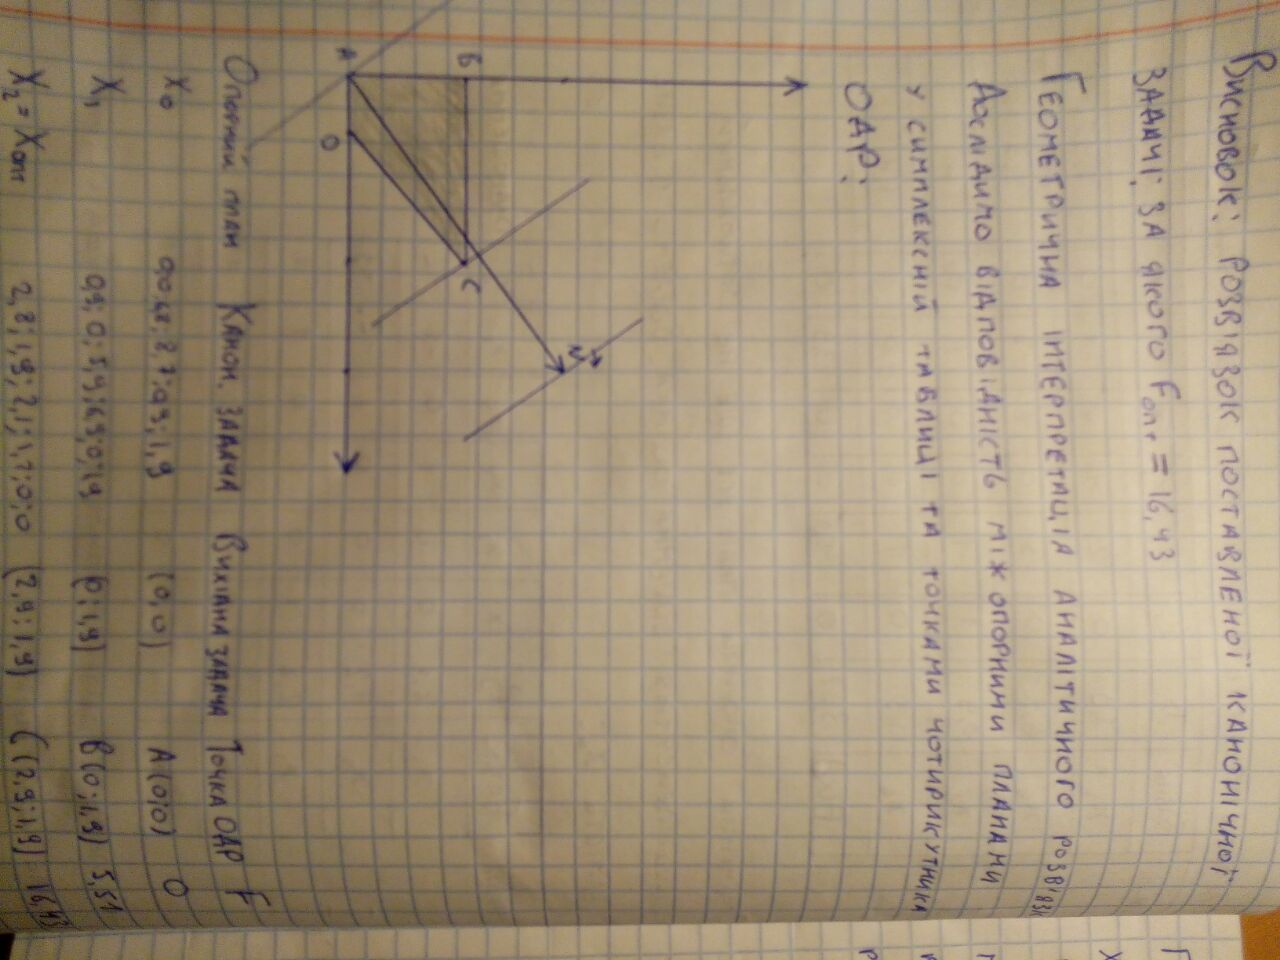 Висновок: розв'язок поставленої канонічної
задачі: за якого Fопт = 16,43
Геометрична інтерпретація аналітичного розв'язк
Дослідимо відповідність між опорними планами
у симплексній таблиці та точками чотирикутника
ОДР:
B
A
D
C
N
Опорний план Канон. задача Вихідна задача Точка ОДР F
X0 (0,0) A(0;0) 0
X1 (0;1,9) B(0;1,9) 5,51
X2 = Xопт (2,9;1,9) C(2,9;1,9) 16,43